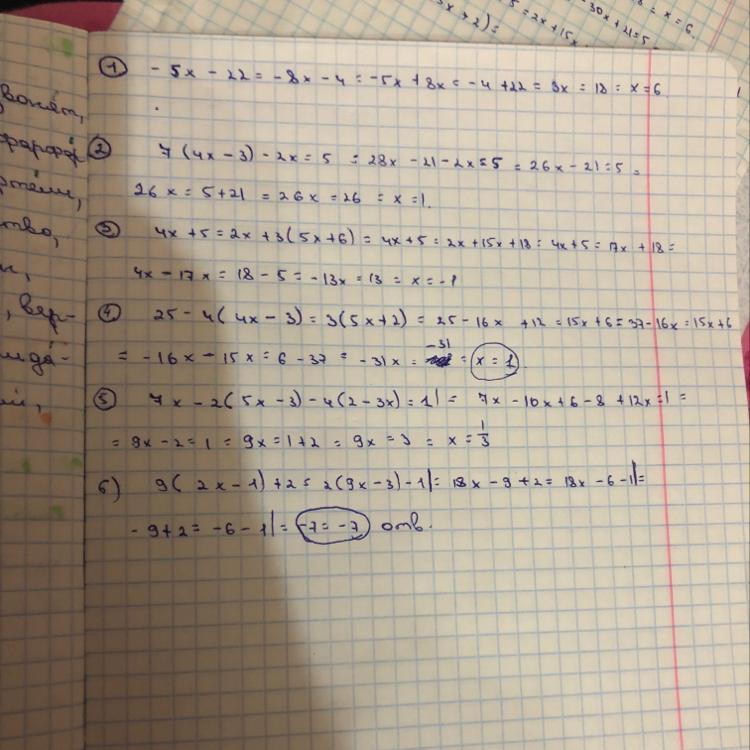 3x + 2) =
5 = 2x + 15x
- 30x + 21 = 5
= x = 6
① - 5x - 22 = - 8x - 4 = -5x + 8x = - 4 + 22 = 3x = 18 = x = 6
вонят,
фарфор
② 7 (4x - 3) - 2x = 5 = 28x - 21 - 2x = 5 = 26x - 21 = 5 =
26x = 5 + 21 = 26x = 26 = x = 1.
тво,
③ 4x + 5 = 2x + 3(5x + 6) = 4x + 5 = 2x + 15x + 18 = 4x + 5 = 17x + 18 =
4x - 17x = 18 - 5 = -13x = 13 = x = -1
, вер-
④ 25 - 4( 4x - 3) = 3(5x + 2) = 25 - 16x + 12 = 15x + 6 = 37 - 16x = 15x + 6
= - 16x - 15x = 6 - 37 = - 31x = -31 = x = 1
⑤ 7x - 2( 5x - 3) - 4( 2 - 3x) = 1 | = 7x - 10x + 6 - 8 + 12x = 1 =
= 9x - 2 = 1 = 9x = 1 + 2 = 9x = 3 = x = 1/3
6) 9( 2x - 1) + 2 = 2(9x - 3) - 1 | = 18x - 9 + 2 = 18x - 6 - 1 | =
- 9 + 2 = - 6 - 1 | = -7 = -7 отв.